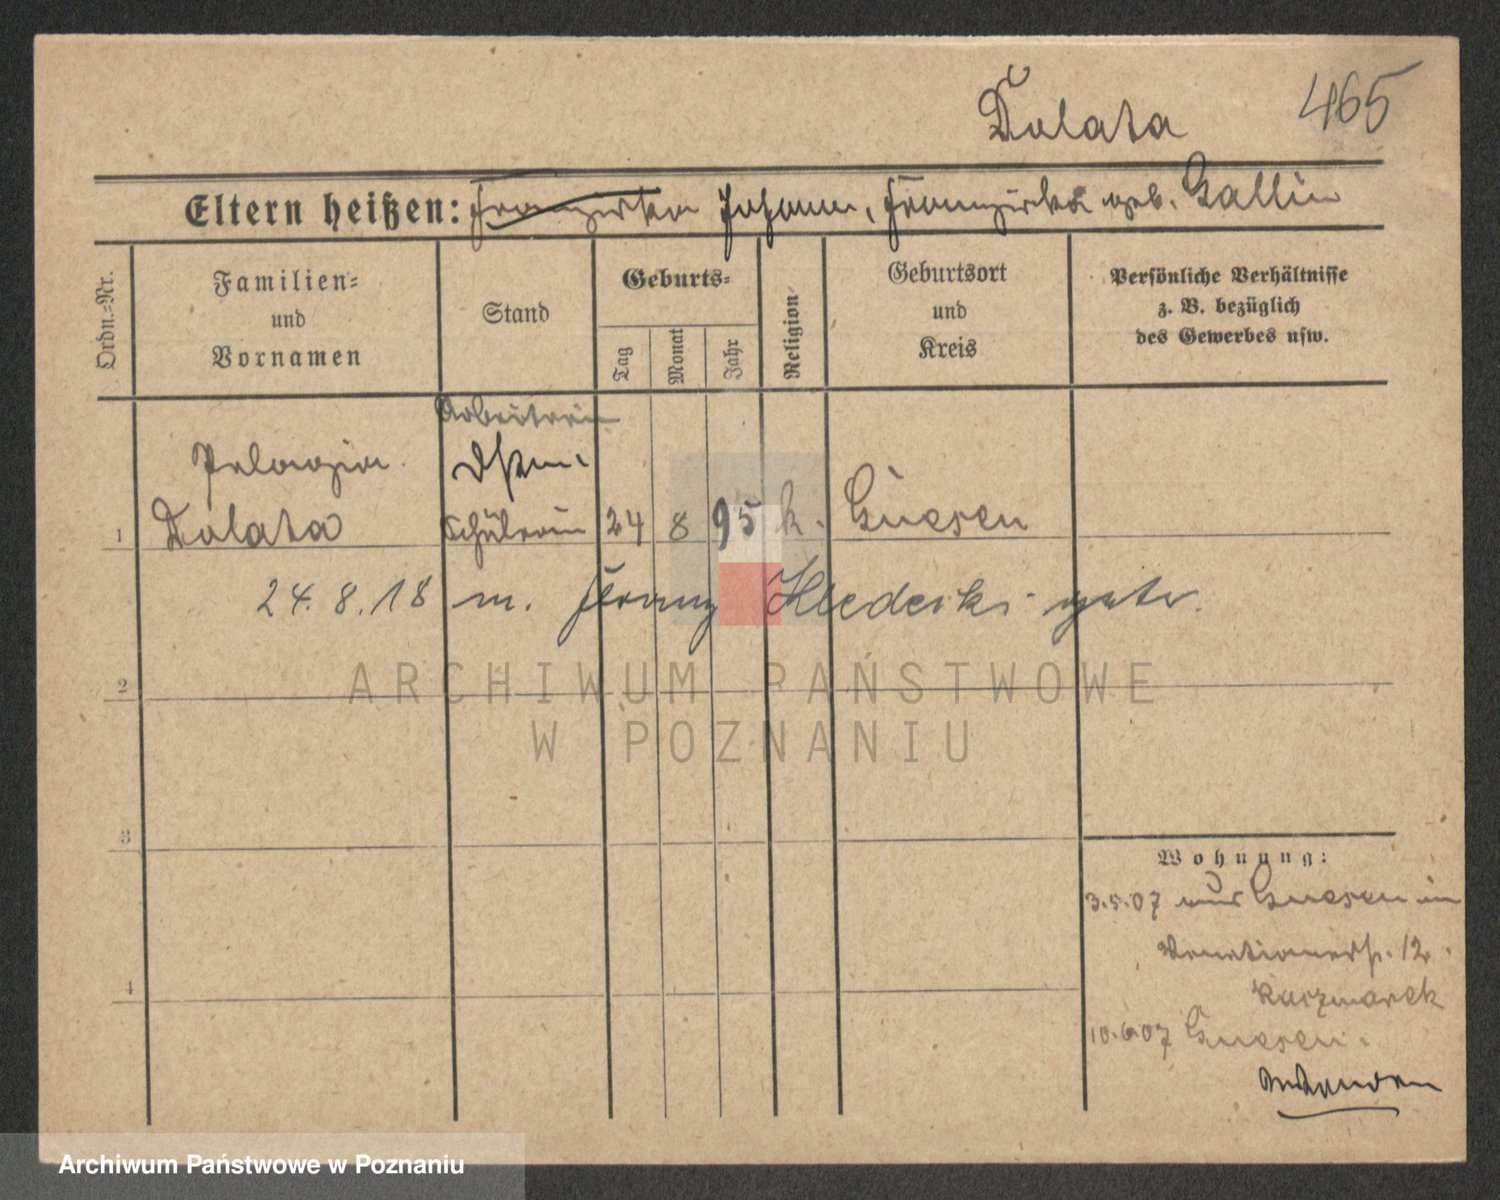 Dolata 465
Eltern heißen: Franziska Johann, Franziska geb. Gallin
Ordn.-Nr.
Familien-
und
Vornamen
Stand
Geburts-
Tag
Monat
Jahr
Religion
Geburtsort
und
Kreis
Persönliche Verhältnisse
z. B. bezüglich
des Gewerbes usw.
Arbeiterin
Pelagia
1 Dolata Schülerin 24 8 95 k. Gnesen
24.8.18 m. Franz getr.
2
3
4
Wohnung:
3.5.07 aus Gnesen in
12
Kaczmarek
10.6.07 Gnesen.
ARCHIWUM PAŃSTWOWE
W POZNANIU
Archiwum Państwowe w Poznaniu